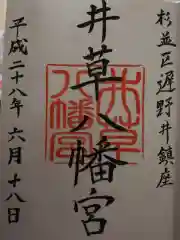 杉並区遅野井鎮座
井草八幡宮
平成二十八年六月十八日